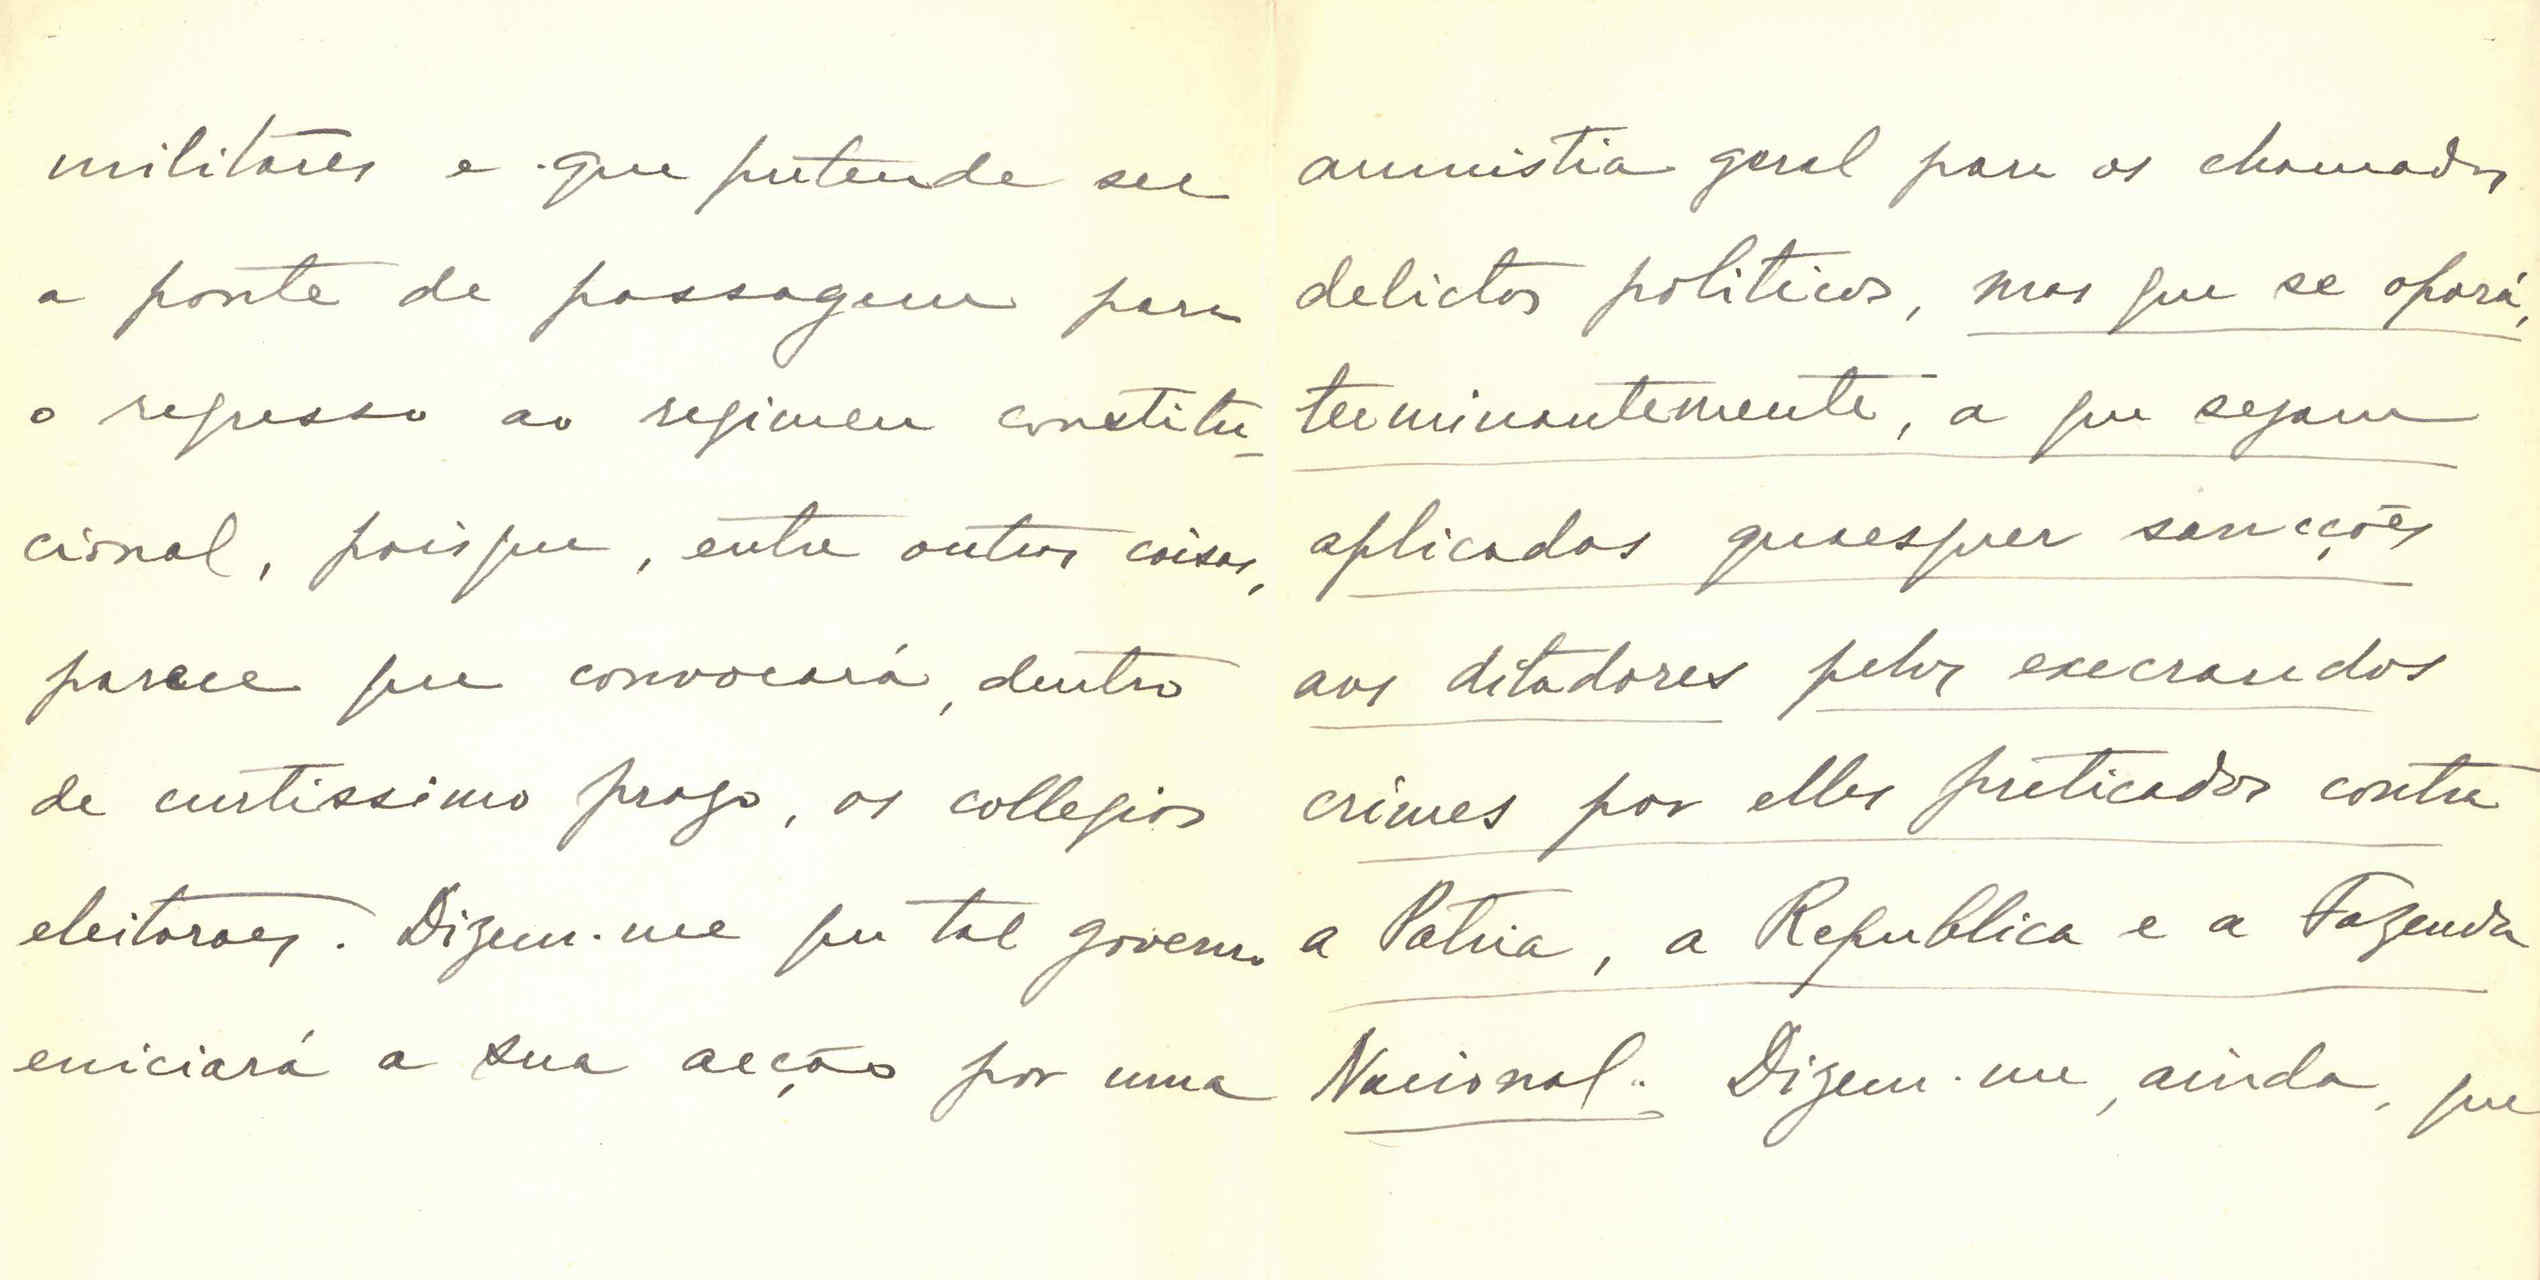 militares e que pretende ser
a ponte de passagem para
o regresso ao regimen constitu-
cional, poisque, entre outras coisas,
parece que convocará, dentro
de curtissimo prazo, os collegios
eleitoraes. Dizem-me que tal governo
eniciará a sua acção por uma
amnistia geral para os chamados
delictos politicos, mas que se oporá,
terminantemente, a que sejam
aplicadas quaesquer sancções
aos ditadores pelos execrandos
crimes por elles preticados contra
a Patria, a Republica e a Fazenda
Nacional. Dizem-me, ainda, que